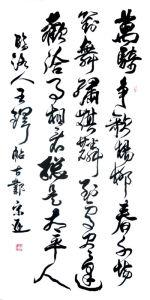 萬騎爭歌楊柳春千場
對舞繡騏驎到處盡逢
歡洽事相看總是太平人
臨洛人王鐸帖古